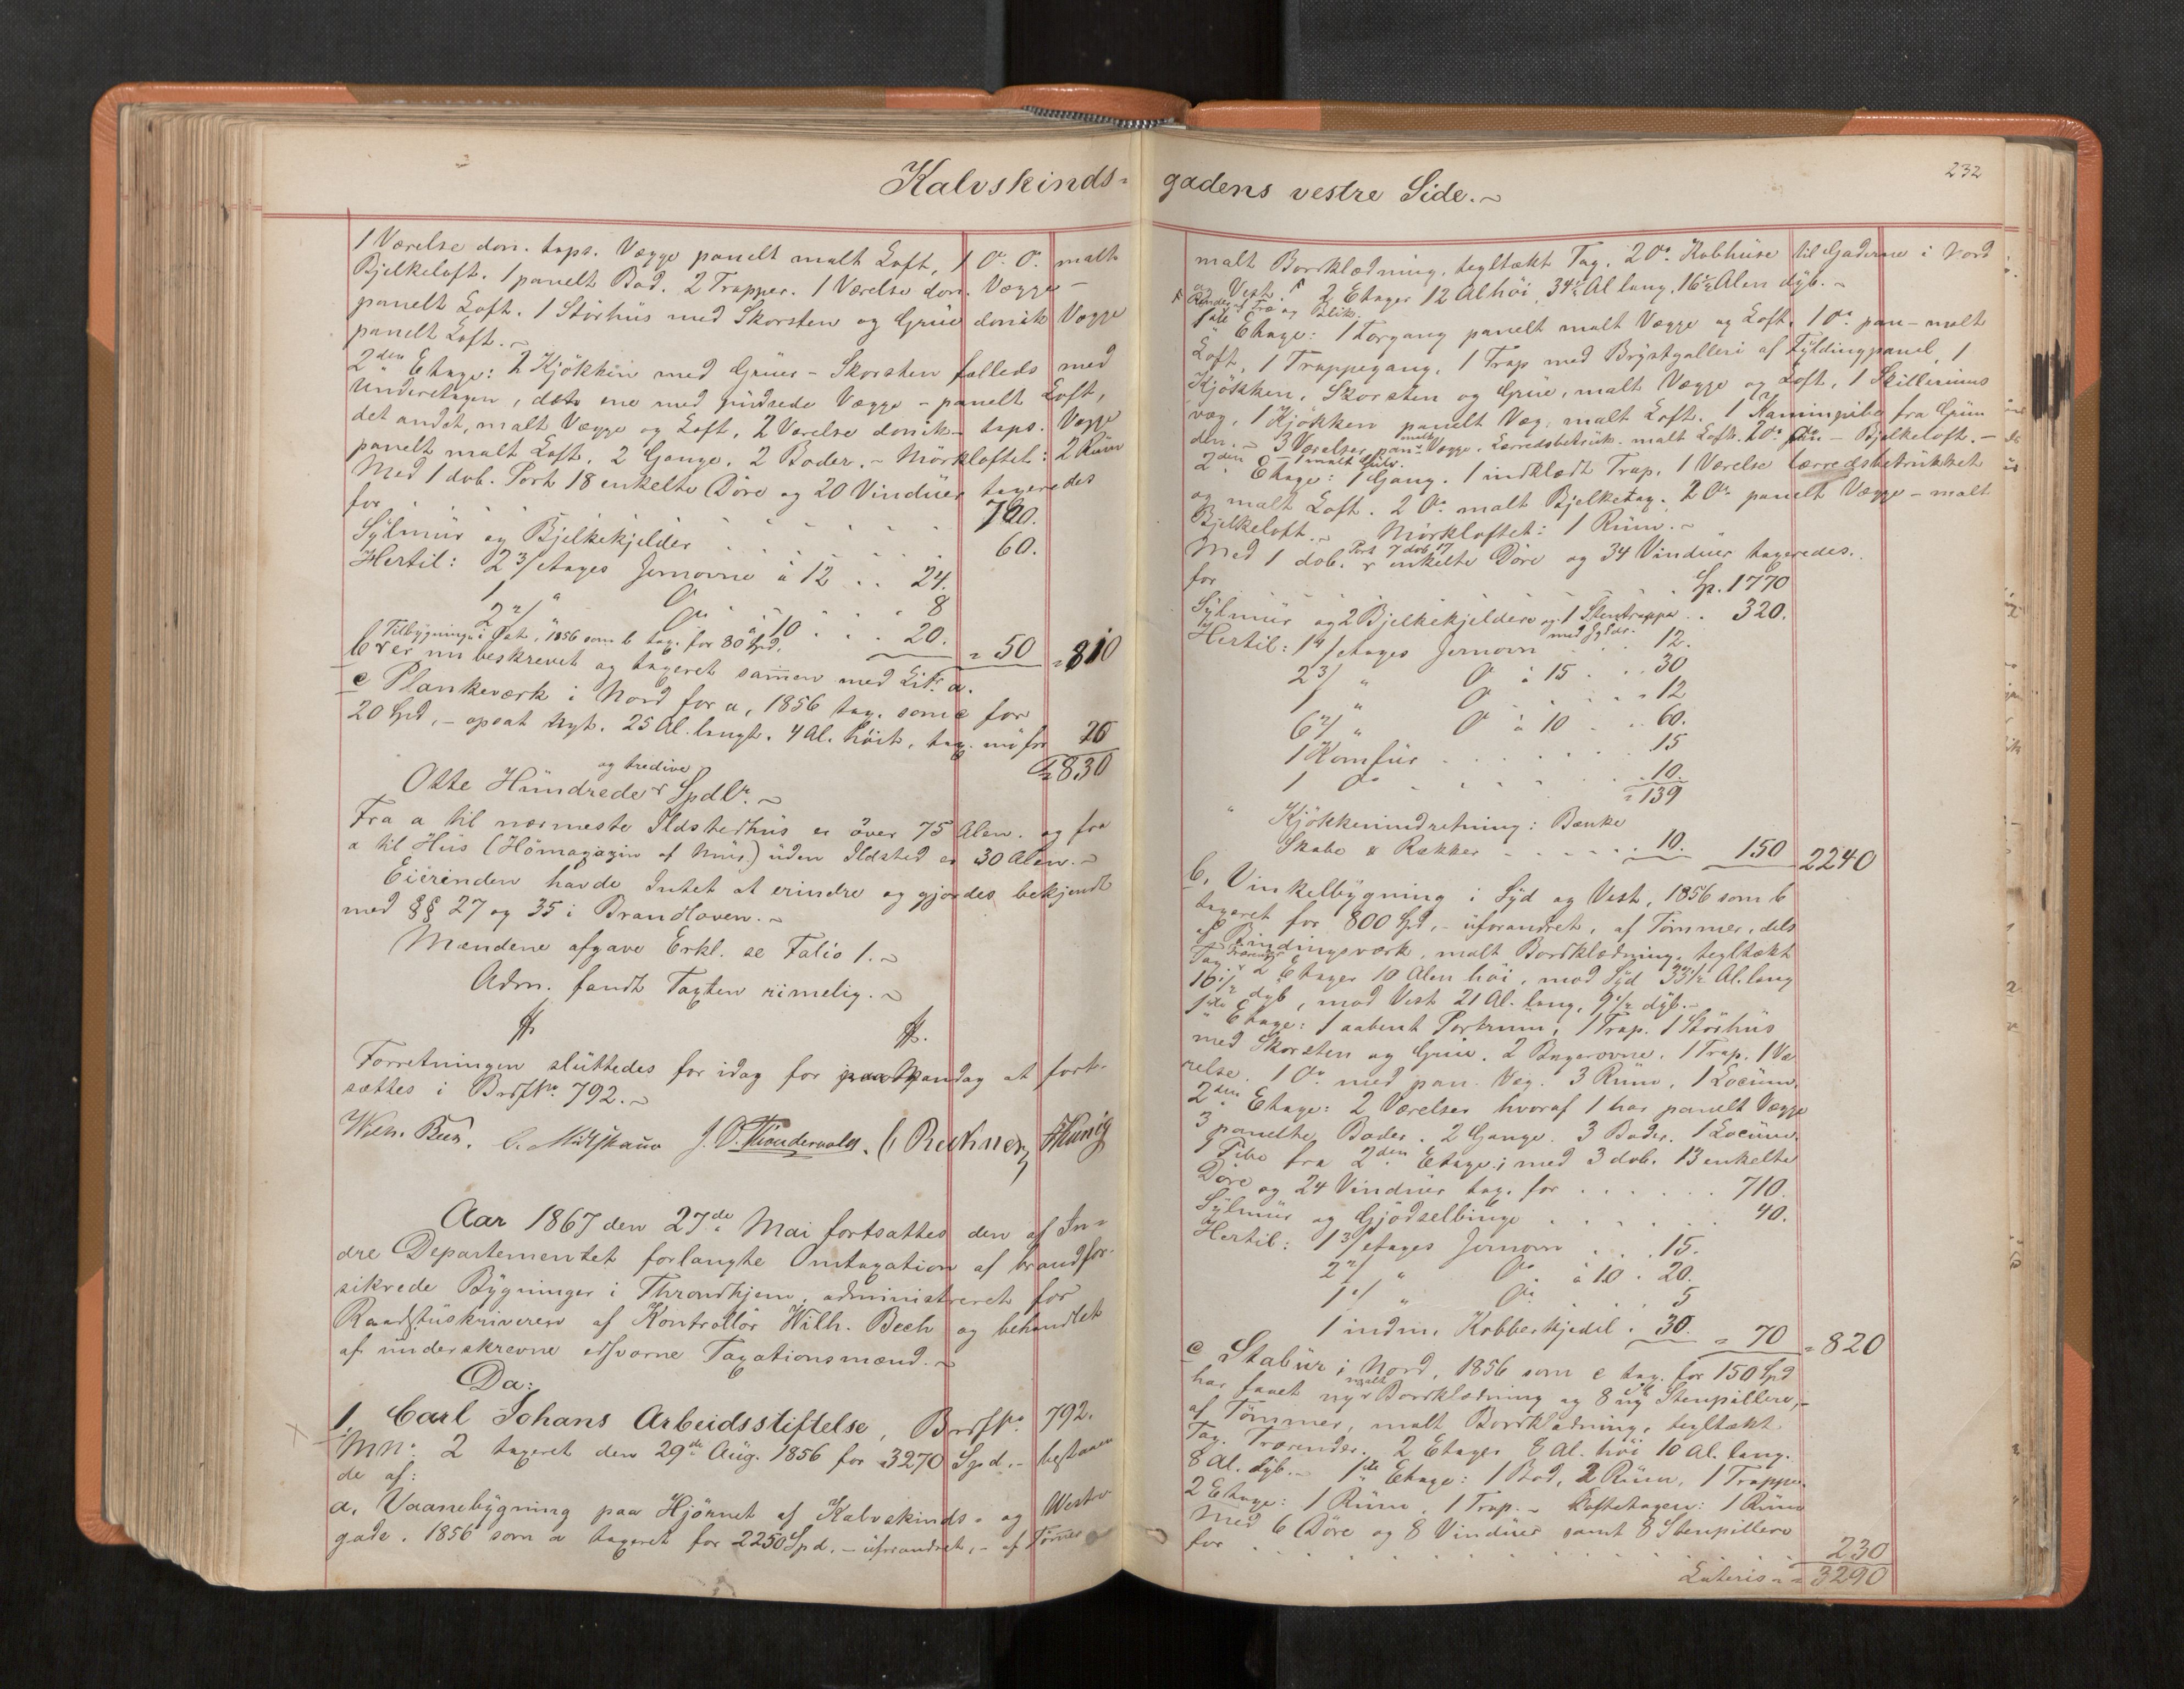 Kalvskinds-
1 Værelse don. taps. Vægge panelt malt Loft, 1 Do. Do. malt
Bjelkeloft. 1 panelt Bod. 2 Trapper. 1 Værelse don. Vægge -
panelt Loft. 1 Störhüs med Skorsten og Grüe donik Vægge
panelt Loft. -
2den Etage: 2 Kjökken med Grüer - Skorsten fælleds med
Underetagen, det ene med Vægge - panelt Loft,
det andet, malt Vægge og Loft, 2 Værelse donik - taps. Vægge
panelt malt Loft, 2 Gange, 2 Boder. - Mörkloftet: 2 Rüm
Med 1 dob. Port 18 enkelte Döre og 20 Vindüer taxeredes
for . . . 700.
Sylmür og Bjelkekjelder . . . 60.
Hertil: 2 3/ Etages Jernovne à 12 . . 24.
1 " Do " . . 8
2 2/ " Do à 10 . . . 20. = 50 = 810
Tilbygningen i Öst, 1856 som b tax. for 80 Spd.
b er nu beskrevet og taxeret sammen med Litr. a.
c Plankeværk i Nord for a, 1856 tax. som c for
20 Spd, - opsat nyt. 25 Al. langt. 4 Al. höit, tax. nü for 20
= 830
Otte Hündrede og tredive Spdlr. -
Fra a til nærmeste Ildstedhüs er över 75 Alen. og fra
a til Hüs (Hömagazin af Mür.) üden Ildsted er 30 Alen. -
Eierinden havde Intet at erindre og gjordes bekjendt
med §§ 27 og 35 i Brandloven. -
Mændene afgave Erkl. se Folio 1. -
Adm. fandt Taxten rimelig. -
Forretningen slüttedes for idag for paa Mandag at fort-
sættes i BrdfNo. 792. -
Aar 1867 den 27de Mai fortsattes den af In-
dre Departementet forlangte Omtaxation af brandfor-
sikrede Bygninger i Throndhjem, administreret for
Raadstüskriveren af Kontrollör Wilh. Bech og behandlet
af ünderskrevne edsvorne Taxationsmænd. -
Da:
1, Carl Johans Arbeidsstiftelse, BrdfNo 792.
MNo. 2 taxeret den 29de Aüg. 1856 for 3270 Spd. - bestaaen
de af:
a, Vaanebygning paa Hjörnet af Kalvskinds- og Vestre-
gade. 1856 som a taxeret for 2250 Spd. - üforandret, - af Tömmer
232
gadens vestre Side. -
malt Bordklædning, tegltækt Tag. 2 Do. Kobhüse til Gaderne i Nord
og Vest. 2 Etager 12 Al höi, 34½ Al lang, 16½ Alen dyb. -
Render af Træ og Blik.
1ste Etage: 1 Forgang panelt malt Vægge og Loft, 1 Do. pan - malt
Loft, 1 Trappegang, 1 Trap med Brystgalleri af Fyldingpanel, 1
Kjökken, Skorsten og Grüe, malt Vægge og Loft, 1 Skillerüms
væg, 1 Kjökken panelt Væg, malt Loft. 1 Kaminpibe fra Grün
den. - 3 Værelser pan - malt Vægge, Lærredsbetrük. malt Loft. 2 Do. - Bjelkeloft. -
2den Etage: 1 Gang. 1 indklædt Trap, 1 Værelse lærredsbetrükket
og malt Loft. 2 Do. malt Bjelketag. 2 Do. panelt Vægge - malt
Bjelkeloft. - Mörkloftet: 1 Rüm. -
Med 1 dob. Port 7 dob. 17 enkelte Döre og 34 Vindüer taxeredes.
for . . . Sp. 1770
Sylmür og 2 Bjelkekjeldere og 1 Stentrappe . . 320.
Hertil: 1 4/ Etages Jernovn . . . 12.
2 3/ " Do à 15 . . . 30
1 " Do . . . 12
6 2/ " Do à 10 . . 60.
1 Komfür . . . 15
1 Do . . . 10.
= 139
" Kjökkenindretning: Bænke
Skabe & Rækker . . . 10. 150 2240
b, Vinkelbygning i Syd og Vest, 1856 som b
taxeret for 800 Spd, - üforandret, af Tömmer, dels
af Bindingsværk, malt Bordklædning, tegltækt
Tag. Trærender 2 Etager 10 Alen höi, mod Syd 33½ Al. lang
10½ dyb, mod Vest 21 Al. lang, 9½ dyb. -
1ste Etage: 1 aabent Portrüm, 1 Trap. 1 Störhüs
med Skorsten og Grüe. 2 Bagerovne. 1 Trap. 1 Væ
relse. 1 Do. med pan. Væg. 3 Rüm, 1 Locüm.
2den Etage: 2 Værelser hvoraf 1 har panelt Vægge
3 panelte Boder. 2 Gange. 3 Boder. 1 Locüm.
1 Pibe fra 2den Etage; med 3 dob. 13 enkelte
Döre og 24 Vindüer tax. for . . . 710.
Sylmür og Gjödselbinge . . . 40.
Hertil: 1 3/ Etages Jernovn . . . 15.
2 2/ " Do à 10 . 20.
1 1/ " Do . 5
1 indm. Kobberkjedel . 30. = 70 = 820
c Stabür i Nord, 1856 som c tax. for 150 Spd
har faaet ny malt Bordklædning og 8 nye Stenpillere, -
af Tömmer, malt Bordklædning, tegltækt
Tag. Trærender. 2 Etager 8 Al. höi 10 Al. lang.
8 Al. dyb. - 1ste Etage: 1 Bod, 2 Rüm, 1 Trappe.
2 Etage: 1 Rüm, 1 Trap. - Loftetagen: 1 Rüm
Med 6 Döre og 8 Vindüer samt 8 Stenpillere
for . . . 230
Lateris = 3290